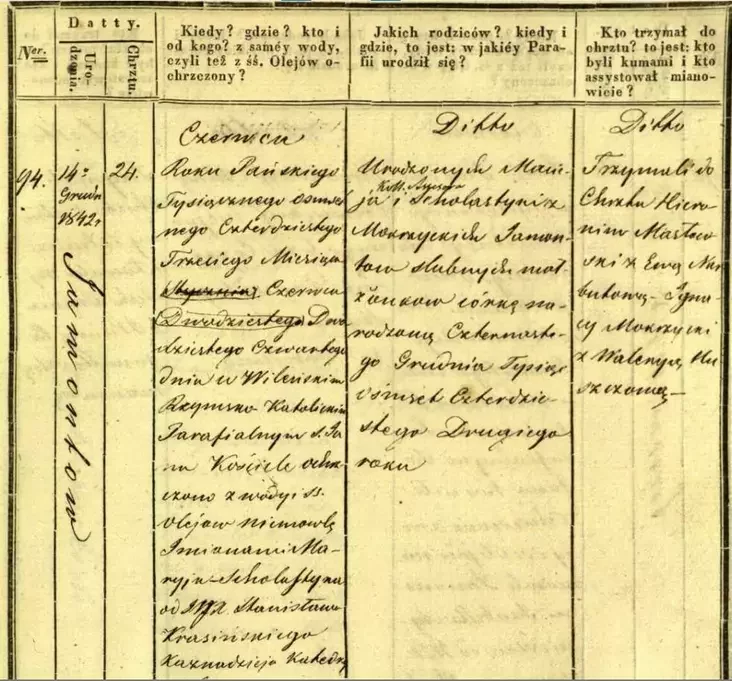 Ner.
Datty.
Urodzenia.
Chrztu.
Kiedy? gdzie? kto i
od kogo? z saméy wody,
czyli też z śś. Olejów o-
chrzczony?
Jakich rodziców? kiedy i
gdzie, to jest: w jakiéy Para-
fii urodził się?
Kto trzymał do
chrztu? to jest: kto
byli kumami i kto
assystował miano-
wicie?
94.
14o
Grudn
1842
Jamontow
24.
Czerwca
Roku Pańskiego
Tysiącznego osmset-
nego Czterdziestego
Trzeciego Miesiąca
Stycznia Czerwca
Dwudziestego Dwu
dziestego Czwartego
dnia w Wileńskim
Rzymsko Katolickim
Parafialnym S. Ja
na Kościele ochrz-
czono z wody i SS.
Olejow niemowlę
Imionami Ma-
ryja Scholastyna
od Stanisława
Krasińskiego
Kaznodzieja Katedry
Ditto
Urodzonych Maci-
ja i Scholastyni z
Mokrzyckich Jamon-
tow slubnych mał-
żonkow córkę na-
rodzoną Czternaste-
go Grudnia Tysiąc
Ośmset Czterdzie-
stego Drugiego
roku
Ditto
Trzymali do
Chrztu Hiero-
nim Masłow-
ski z Ewą Nar
butową - Igna-
cy Mokrzycki
z Waleryą